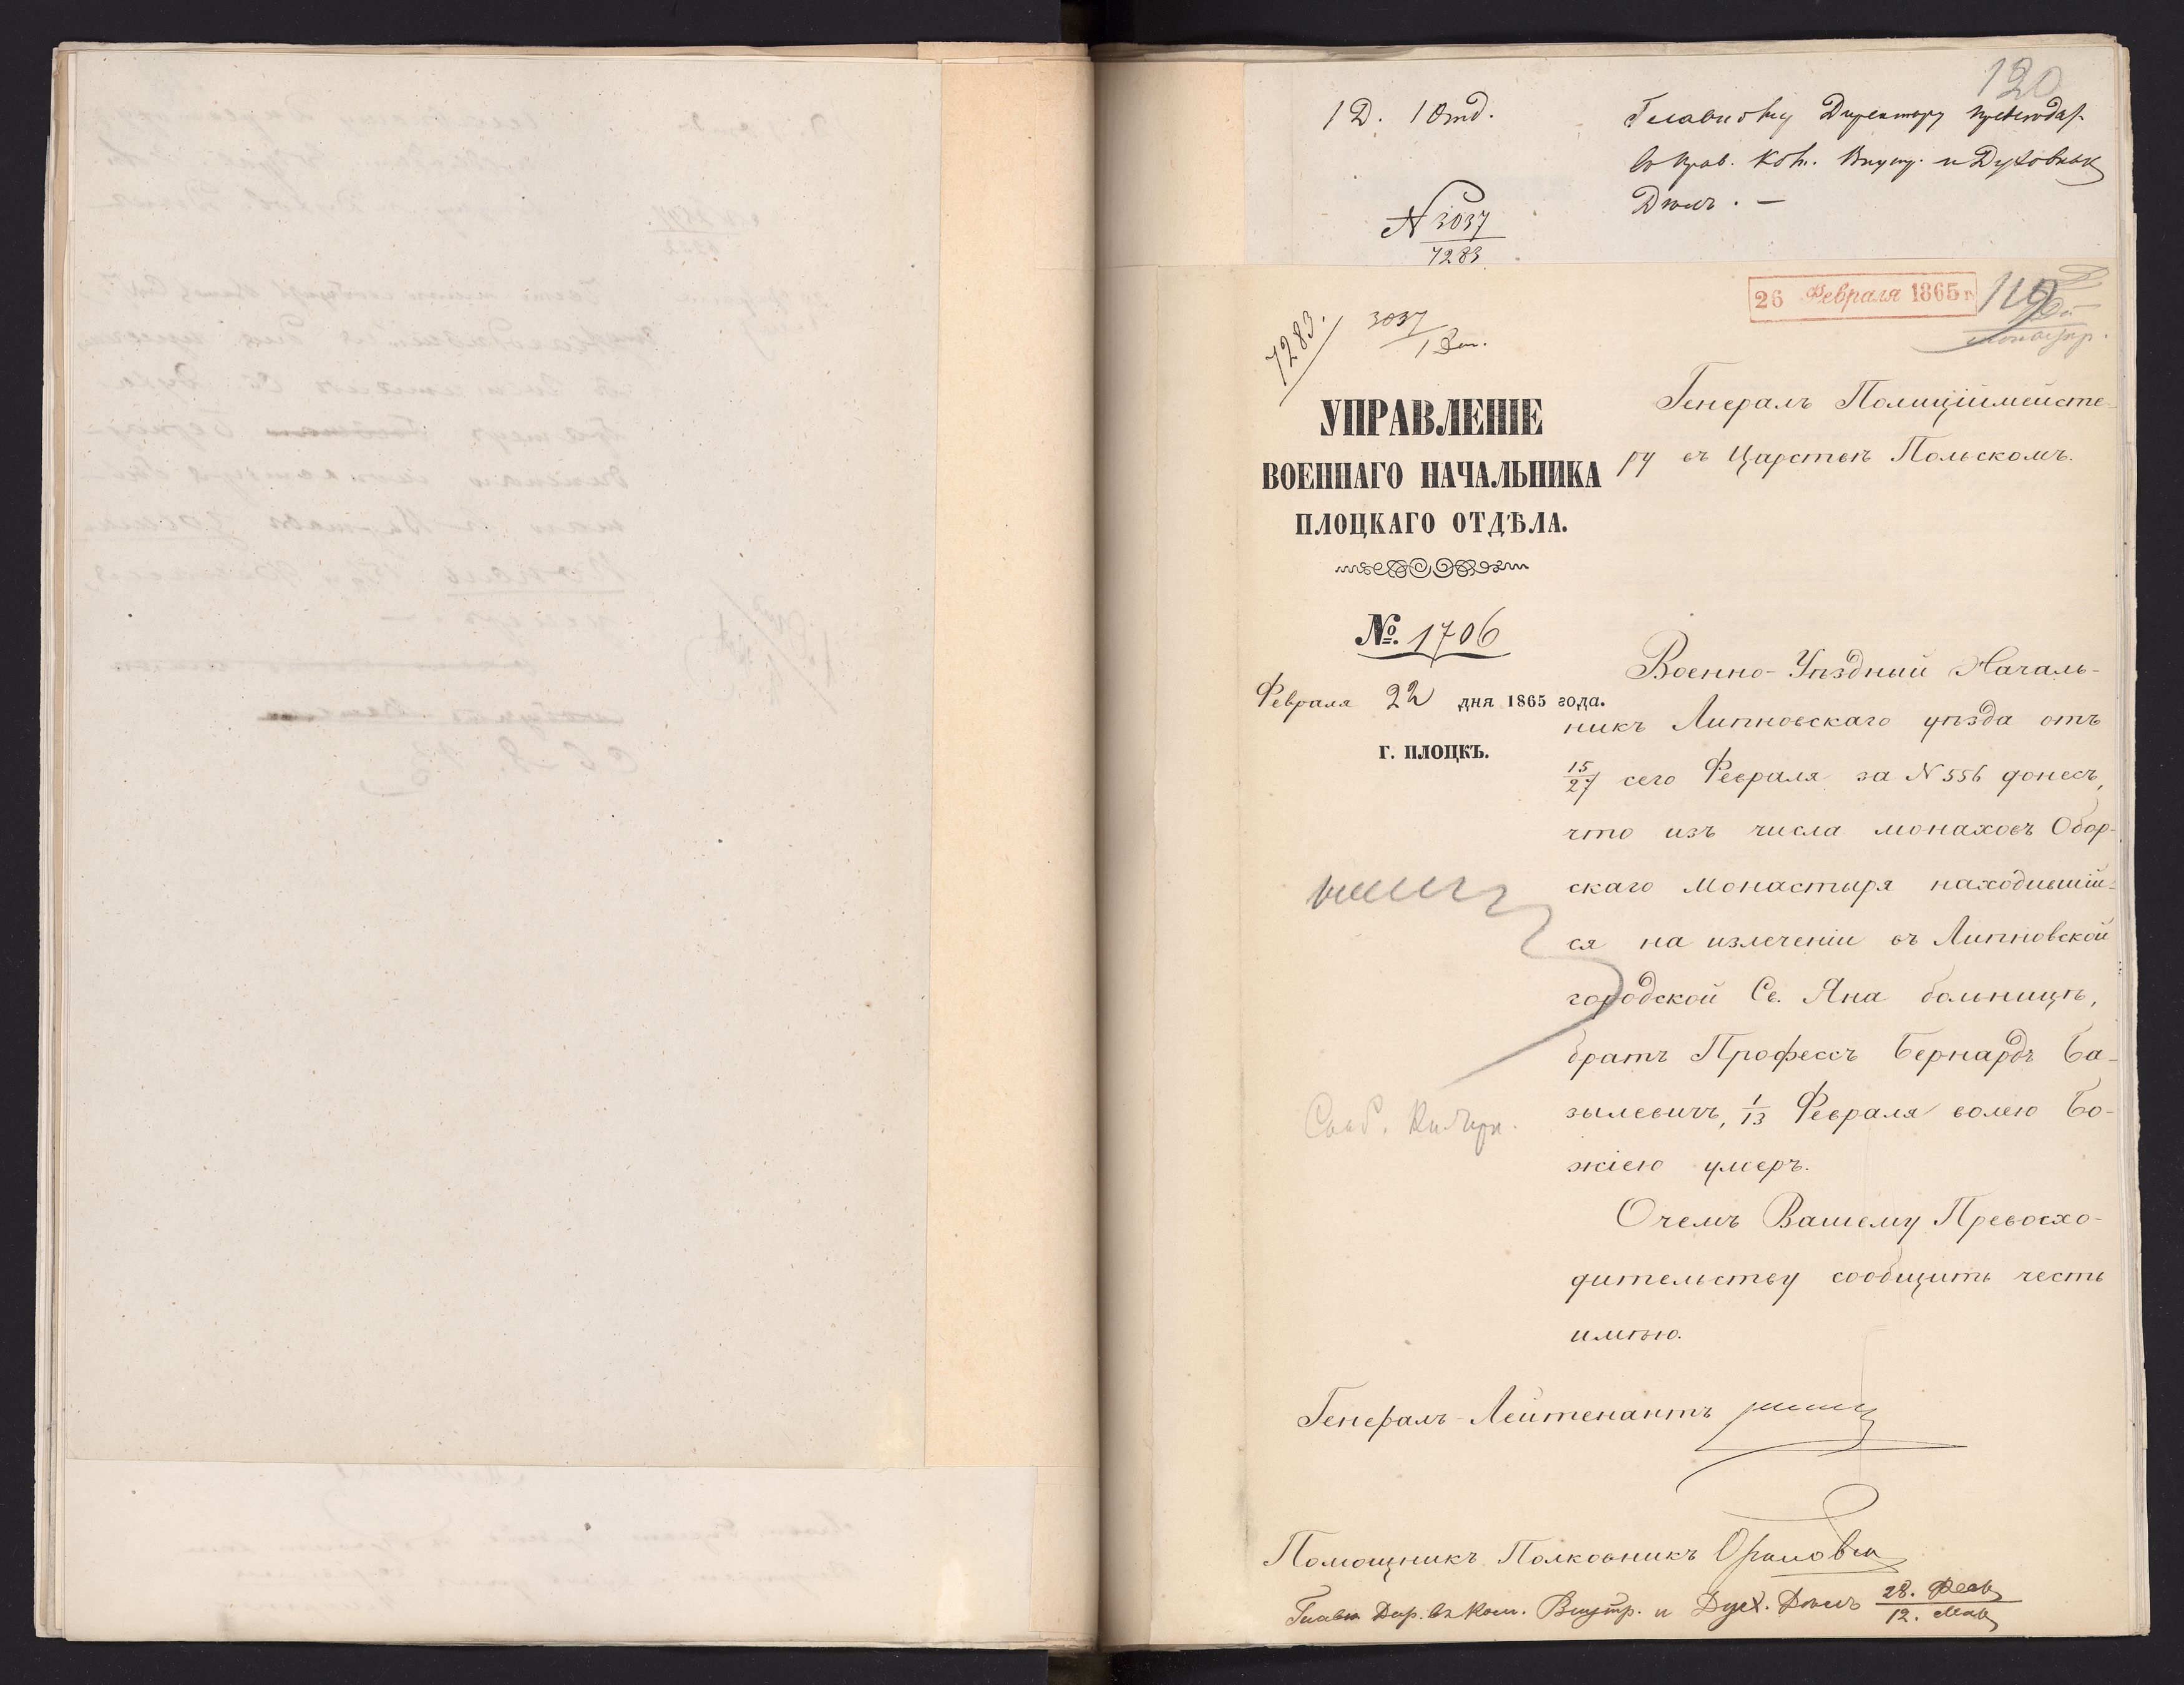 120
1 Д. 1 Отд.
Главному Директору председат.
въ Прав. Ком. Внутр. и Духовных
Дѣлъ. —
N 3037
7283
26 Февраля 1865 г.
119
7283.
3037
УПРАВЛЕНІЕ
ВОЕННАГО НАЧАЛЬНИКА
ПЛОЦКАГО ОТДѢЛА.
№. 1706
Февраля 22 дня 1865 года.
г. ПЛОЦКЪ.
Генералъ Полиціймейсте-
ру въ Царствѣ Польскомъ.
Военно-Уѣздный Началь-
никъ Липновскаго уѣзда отъ
15/27 сего Февраля за N 556 донесъ,
что изъ числа монаховъ Обор-
скаго Монастыря находившій-
ся на излеченіи въ Липновской
городской Св. Яна больницѣ,
братъ Профессъ Бернардъ Ба-
зылевичъ, 1/13 Февраля волею Бо-
жіею умеръ.
Очемъ Вашему Превосхо-
дительству сообщить честь
имѣю.
Генералъ-Лейтенантъ
Помощникъ Полковникъ
Главн. Дир. въ Ком. Внутр. и Дух. Дѣлъ 28. Фев
12. Мар